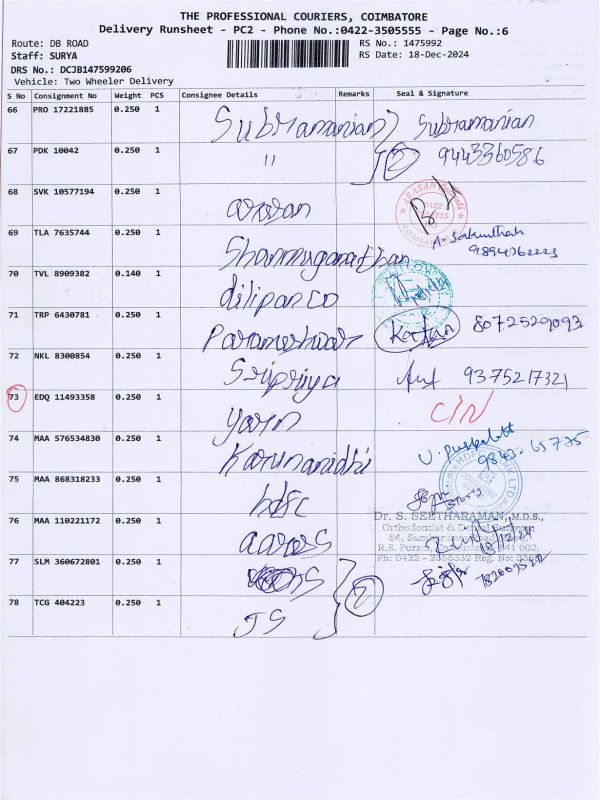 THE PROFESSIONAL COURIERS, COIMBATORE
Delivery Runsheet - PC2 - Phone No.:0422-3505555 - Page No.:6
Route: DB ROAD
Staff: SURYA
DRS No.: DCJB147599206
Vehicle: Two Wheeler Delivery
RS No.: 1475992
RS Date: 18-Dec-2024
S No Consignment No Weight PCS Consignee Details Remarks Seal & Signature
66 PRO 17221885 0.250 1 Subramanian Subramanian
67 PDK 10042 0.250 1 " 2 9443360586
68 SVK 10577194 0.250 1
69 TLA 7635744 0.250 1 Shanmuganathan A. Sakunthala
70 TVL 8909382 0.140 1 dilipan co
71 TRP 6430781 0.250 1 Parameshwar 8072529093
72 NKL 8300854 0.250 1 Sripriya 9375217321
73 EDQ 11493358 0.250 1 yarn
74 MAA 576534830 0.250 1 Karunanidhi
75 MAA 868318233 0.250 1 hdfc
76 MAA 110221172 0.250 1
Dr. S. SEETHARAMAN, M.D.S.,
Orthodontist & Dental Surgeon
18/12/24
77 SLM 360672801 0.250 1
78 TCG 404223 0.250 1 JS 2